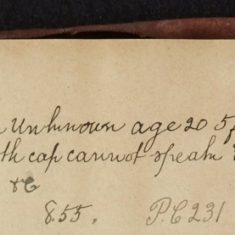 Unknown age 20 5f
th cap cannot speak
&C
8.55. P.C 231